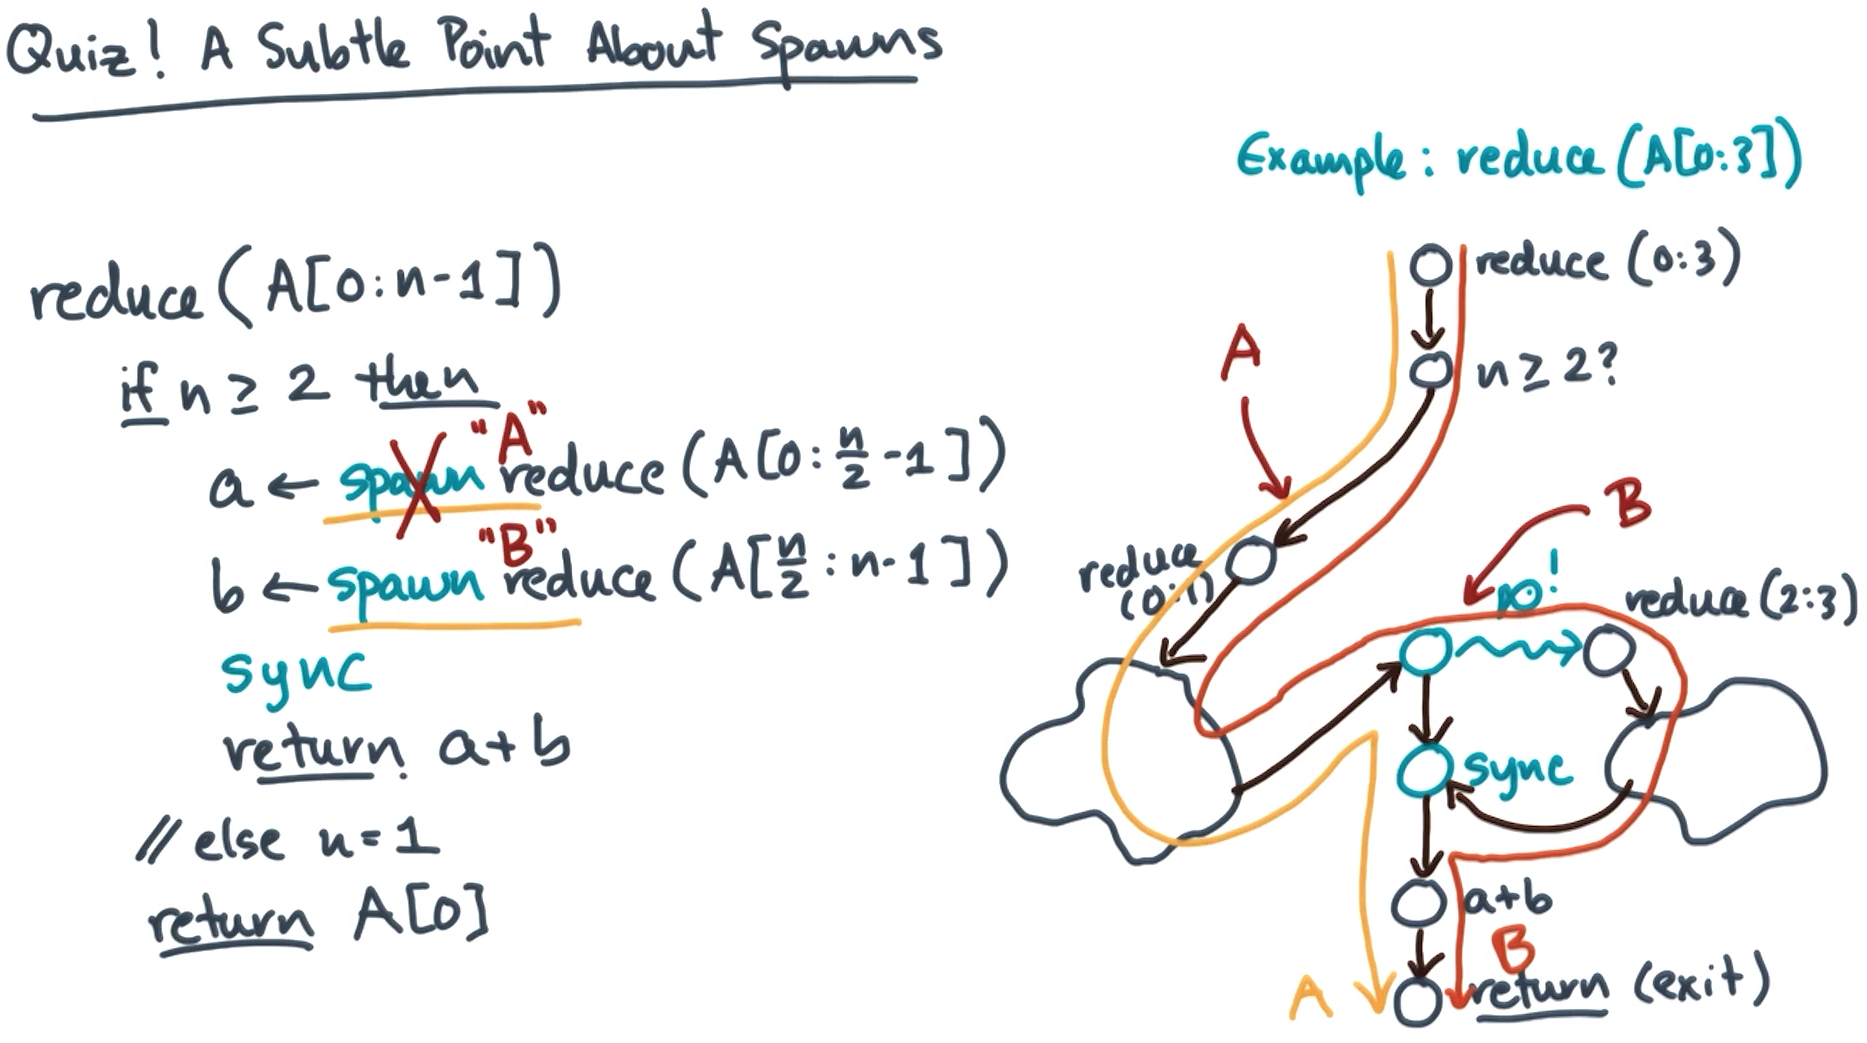 Quiz! A Subtle Point About Spawns
reduce (A[0:n-1])
if n ≥ 2 then
"A"
a ← spawn reduce (A[0:n/2-1])
"B"
b ← spawn reduce (A[n/2:n-1])
sync
return a+b
// else n=1
return A[0]
Example: reduce (A[0:3])
reduce (0:3)
n ≥ 2?
A
B
reduce
(0:1)
!
reduce (2:3)
sync
a+b
B
A
return (exit)